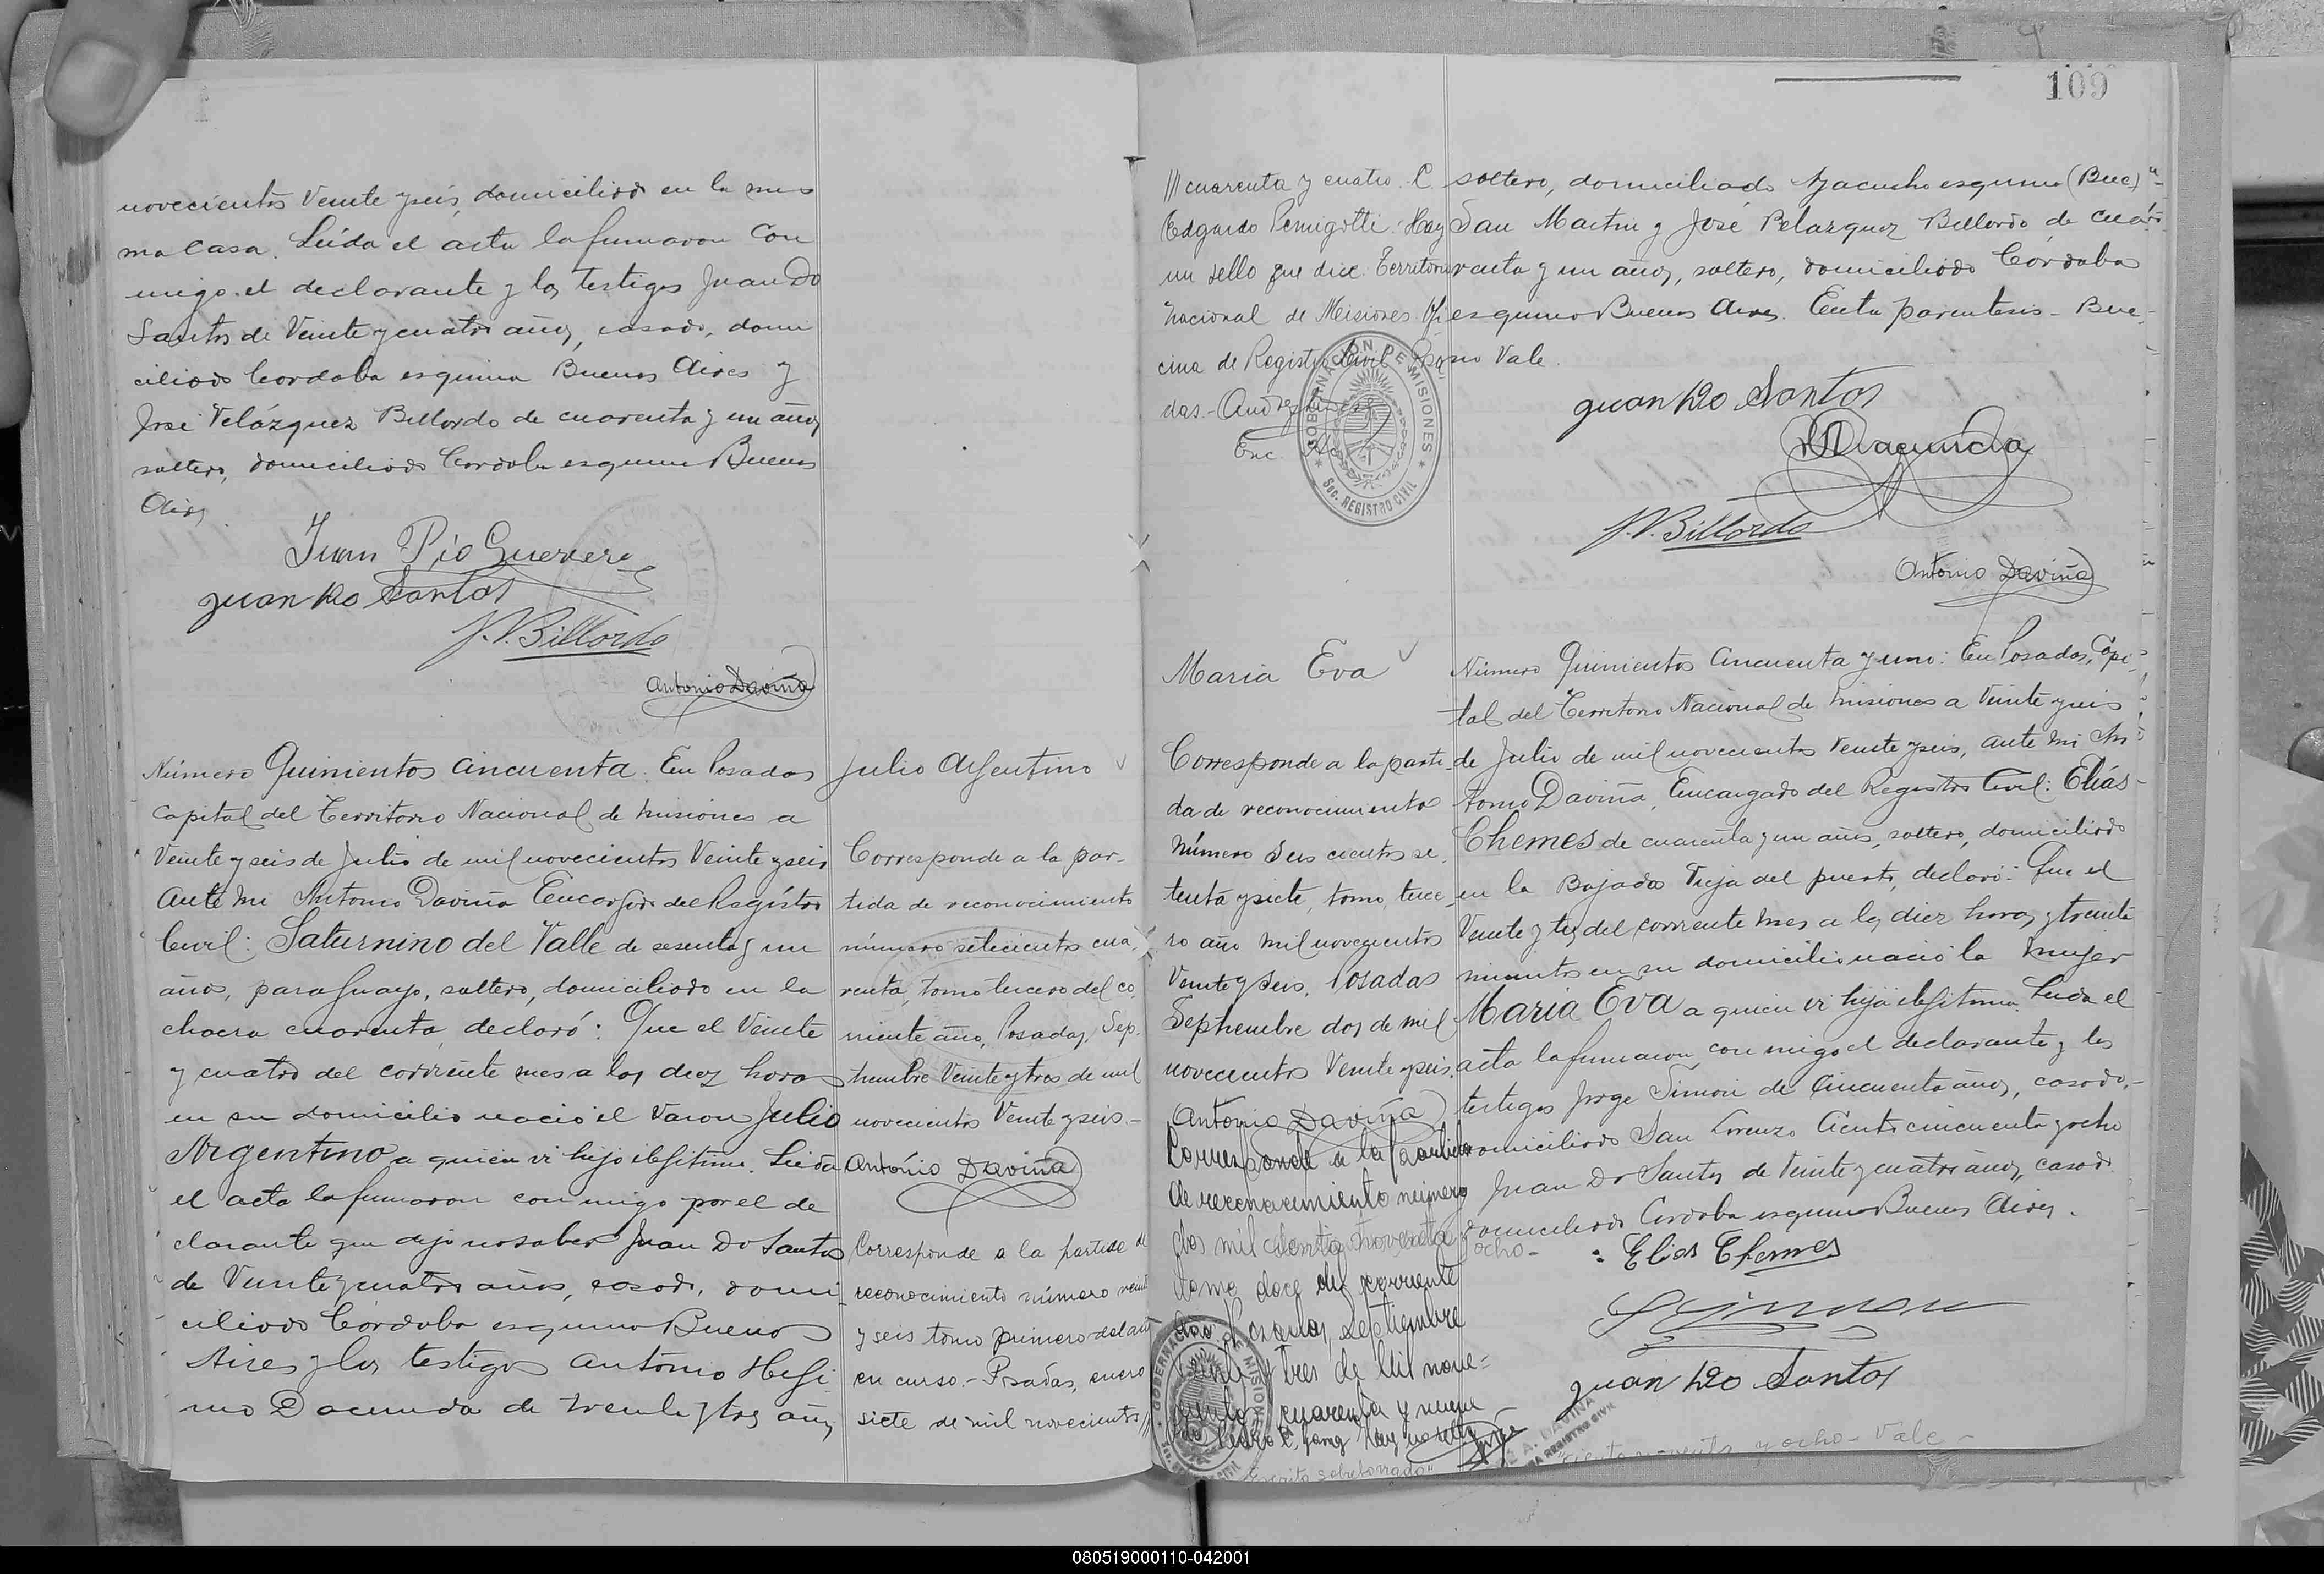 novecientos Veinte y seis, domiciliado en la mis
ma Casa. Leída el acta la firmaron con
migo el declarante y los testigos Juan Do
Santos de Veinte y cuatro años, casado, domi
ciliado Cordoba esquina Buenos Aires y
José Velázquez Billordo de cuarenta y un años
soltero, domiciliado Cordoba esquina Buenos
Aires.
Juan Pio Guerrero
Juan Do Santos
J.V. Billordo
Antonio Daviña
Número Quinientos cincuenta: En Posadas
Capital del Territorio Nacional de Misiones a
Veinte y seis de Julio de mil novecientos Veinte y seis
Ante mi Antonio Daviña Encargado del Registro
Civil: Saturnino del Valle de sesenta y un
años, paraguayo, soltero, domiciliado en la
chacra cuarenta, declaró: Que el Veinte
y cuatro del corriente mes a las diez horas
en su domicilio nació el Varon Julio
Argentino a quien vi hijo ilegitimo. Leida
el acta la firmaron conmigo por el de
clarante que dijo no saber Juan Do Santos
de Veinte y cuatro años, casado, domi
ciliado Córdoba esquina Buenos
Aires y los testigos Antonio
de treinta y tres años
Julio Argentino
Corresponde a la par-
tida de reconocimiento
número setecientos cua
renta, tomo tercero del co
rriente año, Posadas, Sep
tiembre Veinte y tres de mil
novecientos Veinte y seis.-
Antonio Daviña
Corresponde a la partida de
reconocimiento número veinte
y seis tomo primero del año
en curso.- Posadas, enero
siete de mil novecientos //
109
/// cuarenta y cuatro. C.
Edgardo Hay
un sello que dice: Territorio
Nacional de Misiones Ofi
cina de Registro Civil Posa
das.-
Enc.
GOBERNACIÓN DE MISIONES
Sec. REGISTRO CIVIL
soltero, domiciliado Ayacucho esquina (Bue)
San Martin y José Velazquez Billordo de cua
renta y un años, soltero, domiciliado Córdoba
esquina Buenos Aires. Entre parentesis - Bue-
no Vale.
Juan Do Santos
J.V. Billordo
Antonio Daviña
Maria Eva
Corresponde a la parti-
da de reconocimiento
número seis cientos se
tenta y siete, tomo, terce
ro año mil novecientos
Veinte y seis, Posadas
Septiembre dos de mil
novecientos Veinte y seis.
Antonio Daviña
Corresponde a la partida
de reconocimiento número
dos mil ciento noventa ocho-
tomo doce del corriente
año. Posadas, septiembre
veinte y tres de mil nove=
cientos cuarenta y nueve
GOBERNACIÓN DE MISIONES
Número Quinientos cincuenta y uno: En Posadas, Capi-
tal del Territorio Nacional de Misiones a Veinte y seis
de Julio de mil novecientos Veinte y seis, ante mi An
tonio Daviña, Encargado del Registro Civil: Elías
Chemes de cuarenta y un años, soltero, domiciliado
en la Bajada Vieja del puerto, declaró: Que el
Veinte y tres del corriente mes a las diez horas y treinta
minutos en su domicilio nació la mujer
Maria Eva a quien vi hija ilegitima. Leida el
acta la firmaron conmigo el declarante y los
testigos Jorge Simon de Cincuenta años, casado,-
domiciliado San Lorenzo Ciento cincuenta y ocho
Juan Do Santos de Veinte y cuatro años, casado.
domiciliado Cordoba esquina Buenos Aires.
Elias Chemes
Juan Do Santos
A. DAVIÑA
REGISTRO CIVIL
Escrito sobreborrado "ciento noventa y ocho - Vale -
080519000110-042001